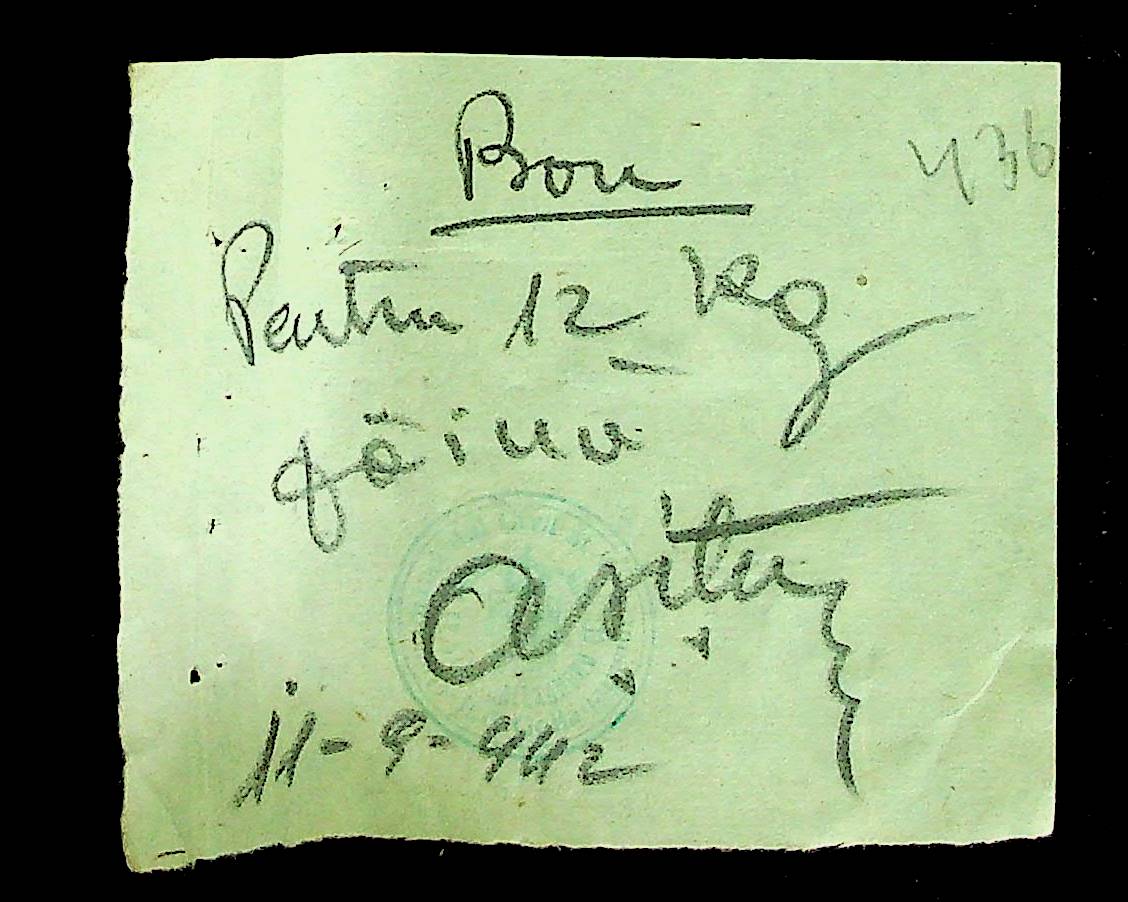 Bon
436
Pentru 12 kg
făină
11-9-942